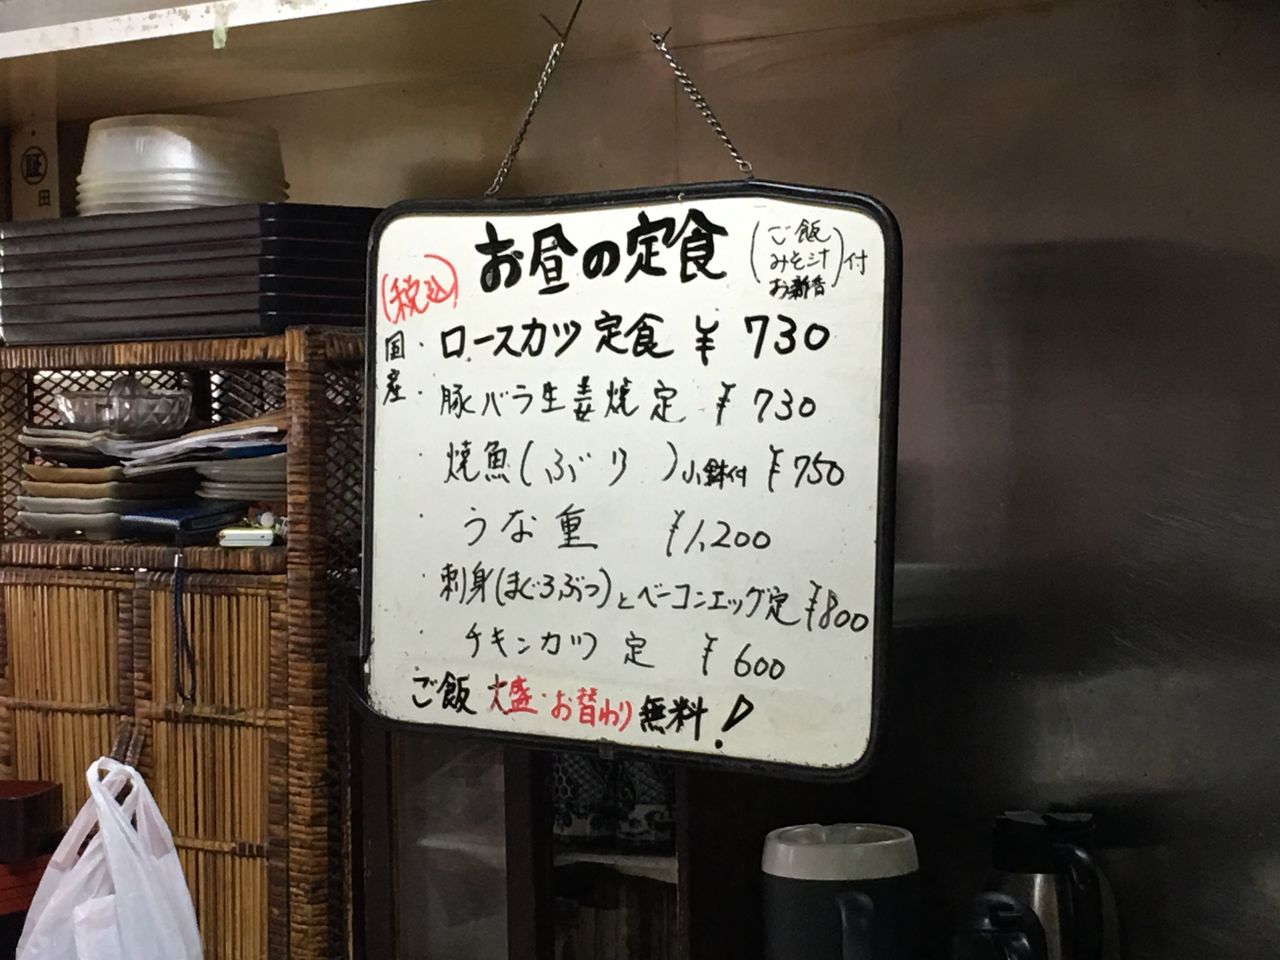 お昼の定食
(ご飯
みそ汁
お新香)付
(税込)
国産
・ロースカツ定食 ¥730
・豚バラ生姜焼定 ¥730
・焼魚(ぶり)小鉢付 ¥750
・うな重 ¥1,200
・刺身(まぐろぶつ)とベーコンエッグ定 ¥800
・チキンカツ定 ¥600
ご飯 大盛・お替わり無料!
証
田